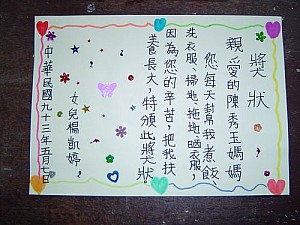 獎狀
親愛的陳秀玉媽媽
您每天幫我煮飯、
洗衣服、掃地、拖地、晒衣服,
因為您的辛苦,把我扶
養長大,特頒此獎狀
女兒楊凱婷
中華民國九十三年五月七日